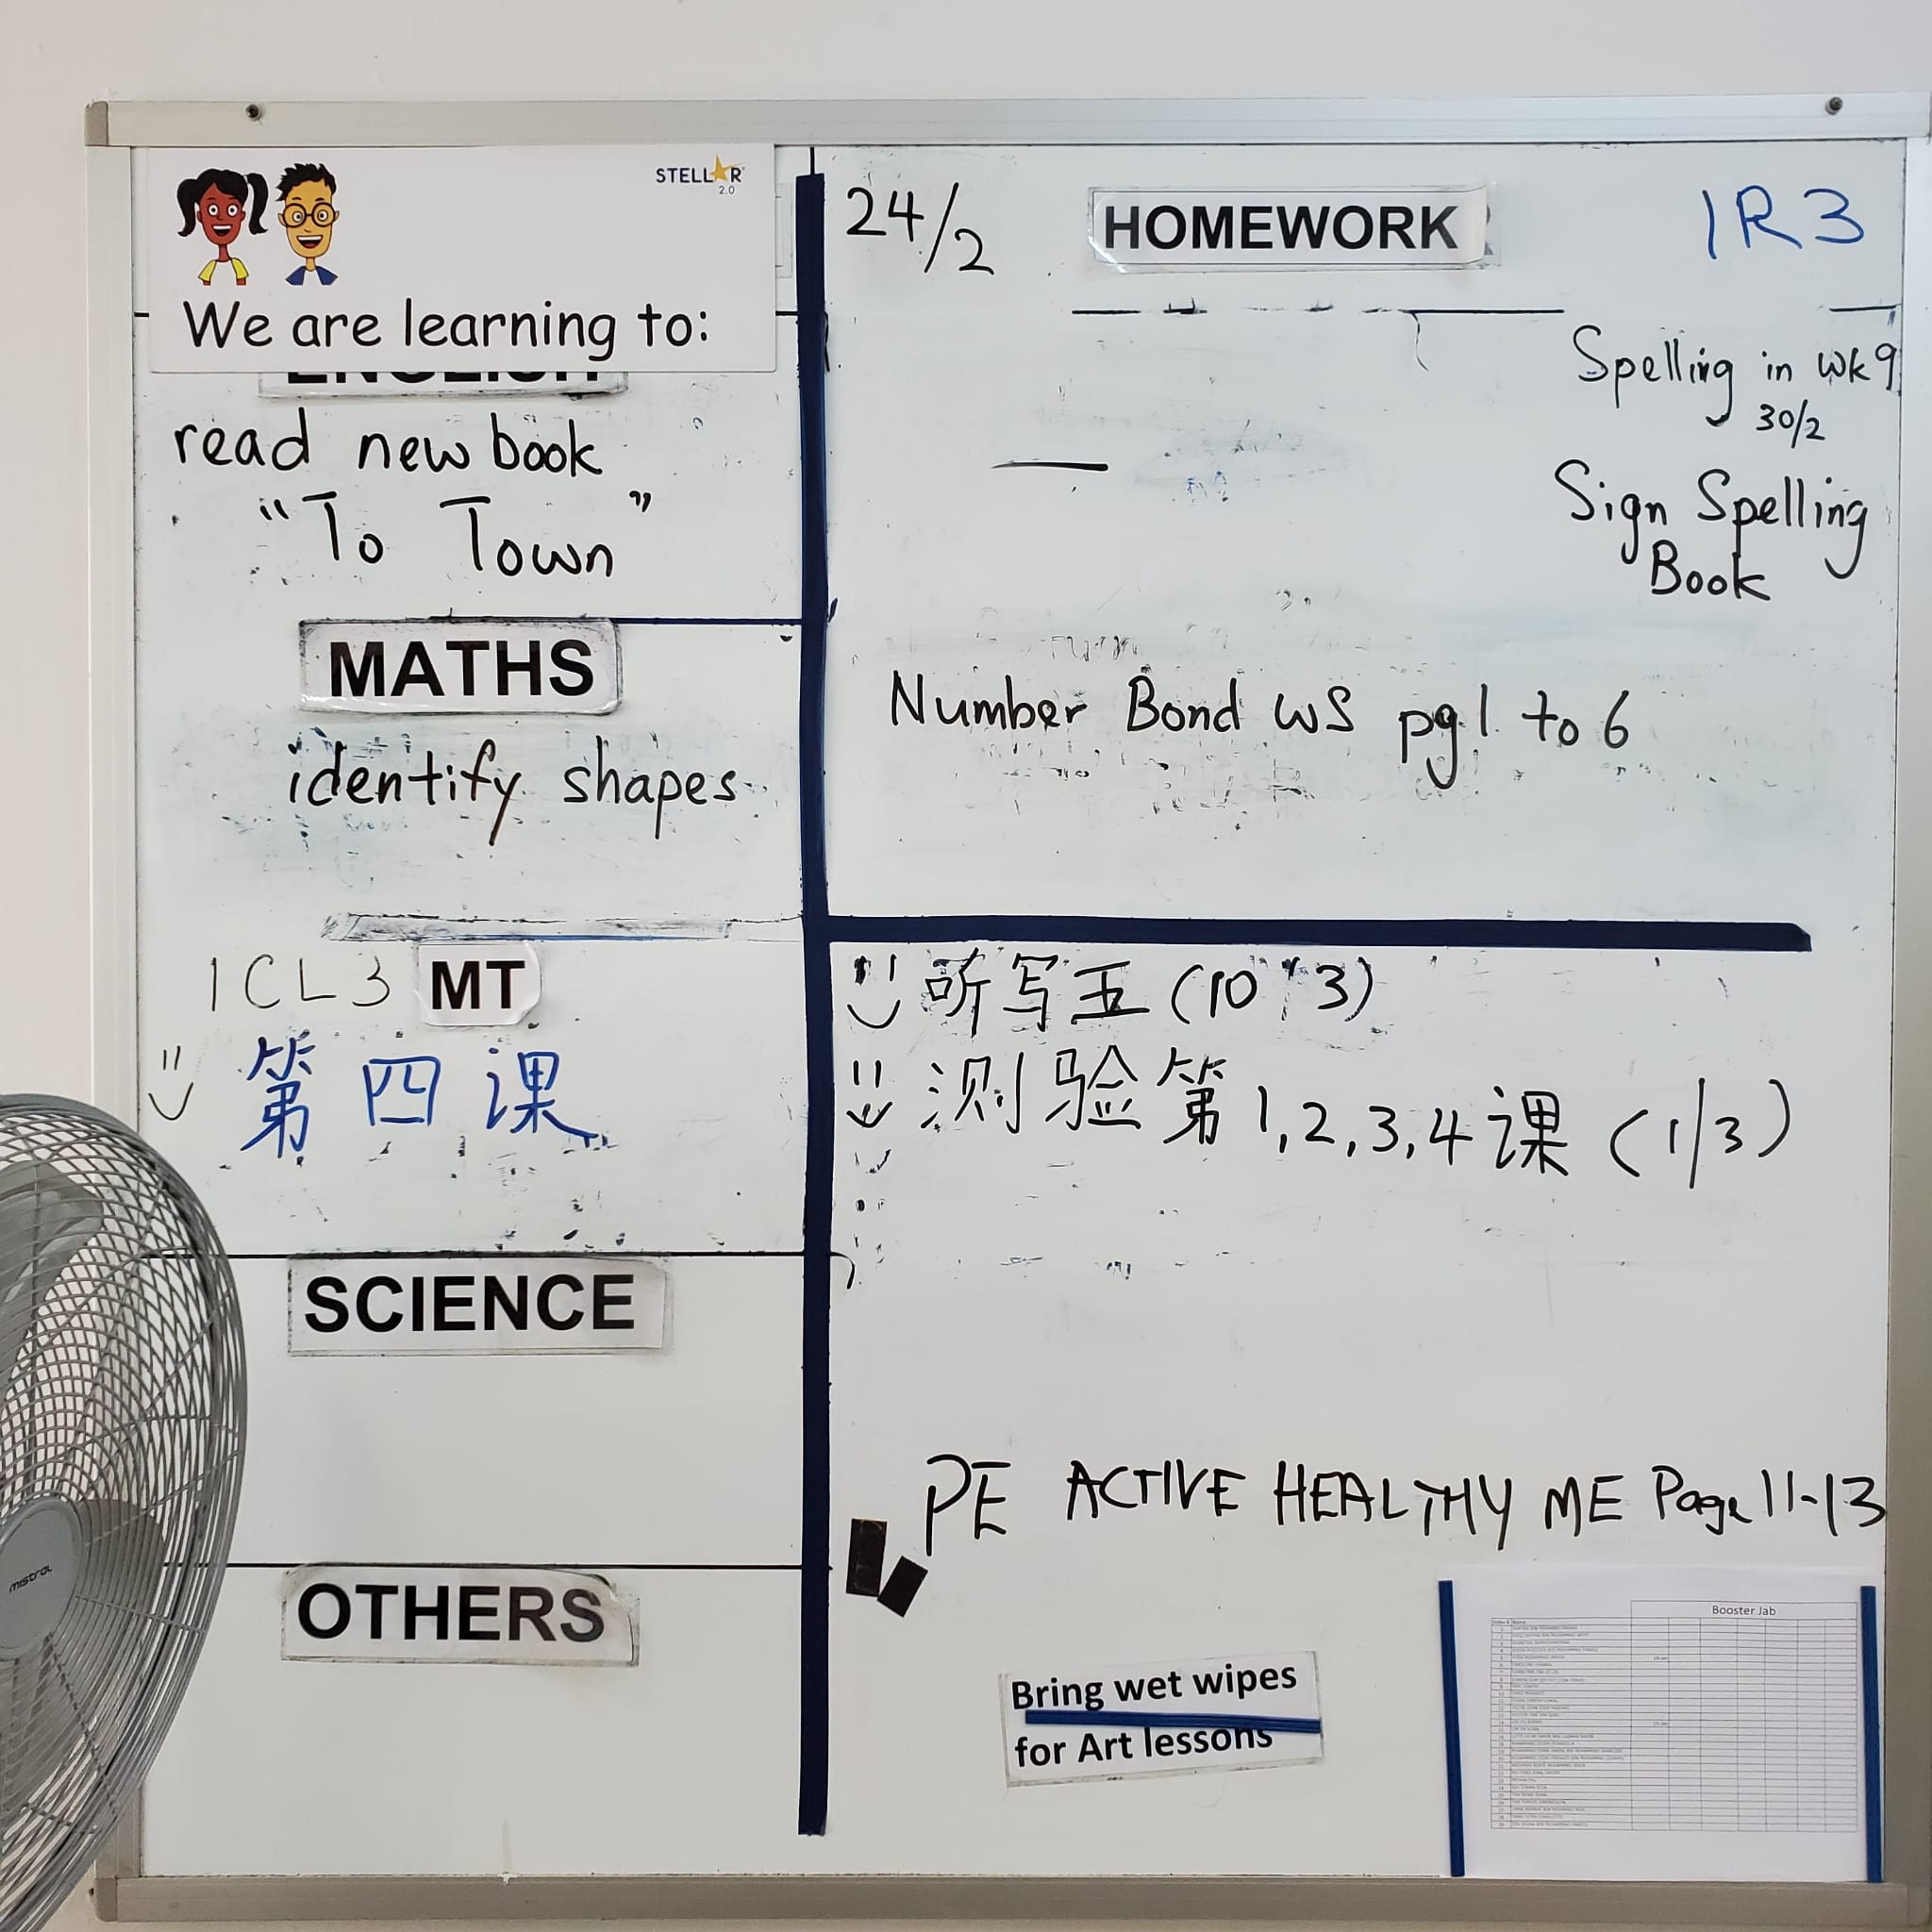 STELLAR
2.0
We are learning to:
ENGLISH
read new book
"To Town"
MATHS
identify shapes
1CL3 MT
第四课
SCIENCE
OTHERS
mistral
24/2 HOMEWORK 1R3
Spelling in wk 9
30/2
Sign Spelling
Book
Number Bond WS pg 1 to 6
听写五 (10/3)
测验第1,2,3,4课 (1/3)
PE ACTIVE HEALTHY ME Page 11-13
Bring wet wipes
for Art lessons
Booster Jab
Name